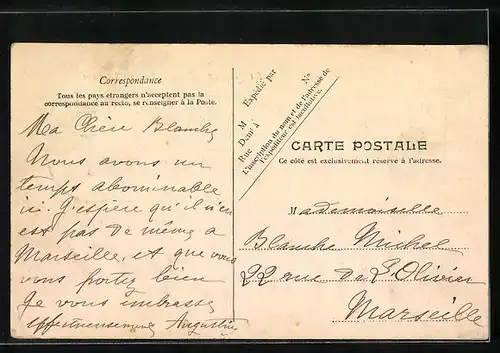 Correspondance
Tous les pays étrangers n'acceptent pas la
correspondance au recto, se renseigner à la Poste.
Ma Chère Blanche
Nous avons un
temps abominable
ici. J'espère qu'il n'en
est pas de même a
Marseille, et que vous
vous portez bien
Je vous embrasse
affectueusement Augustine
Expédié par
M
Demt à
Rue
No
L'inscription du nom et de l'adresse de
l'expéditeur est facultative.
CARTE POSTALE
Ce côté est exclusivement réservé à l'adresse.
Mademoiselle
Blanche Michel
22 rue de l'Olivier
Marseille